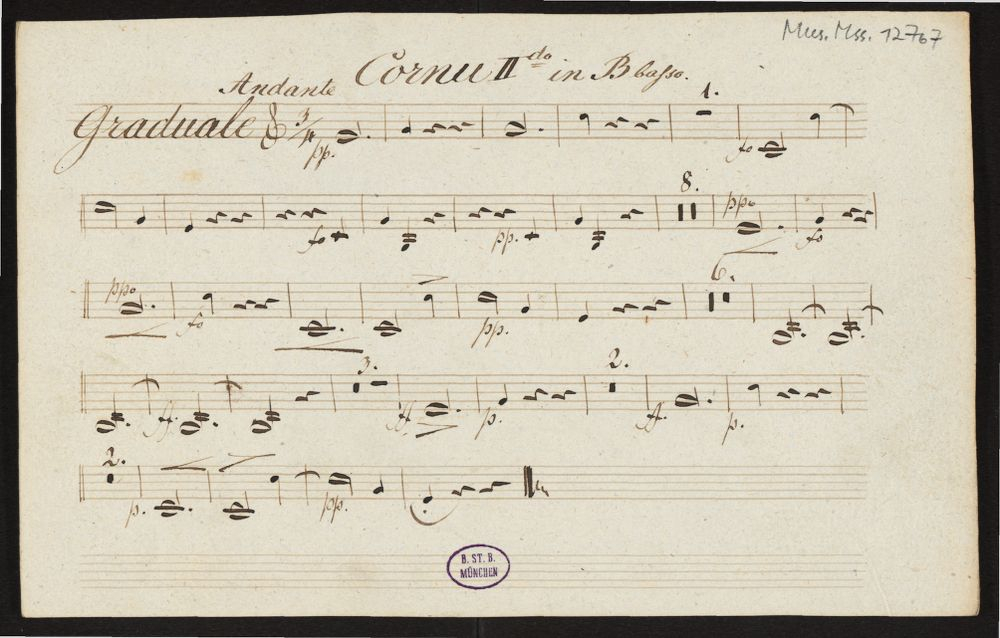 Mus. Mss. 12767
Cornu II do in B basso.
Andante
Graduale 3/4 pp. 1. fo
fo pp. 8. ppo fo
ppo fo pp. 6.
ff. 3. ff p. 2. ff. p.
2. p. pp.
B. ST. B.
MÜNCHEN